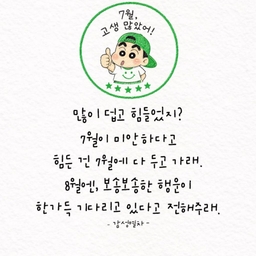 7월,
고생 많았어!
많이 덥고 힘들었지?
7월이 미안하다고
힘든 건 7월에 다 두고 가래.
8월엔, 보송보송한 행운이
한가득 기다리고 있다고 전해주래.
- 감성열차 -